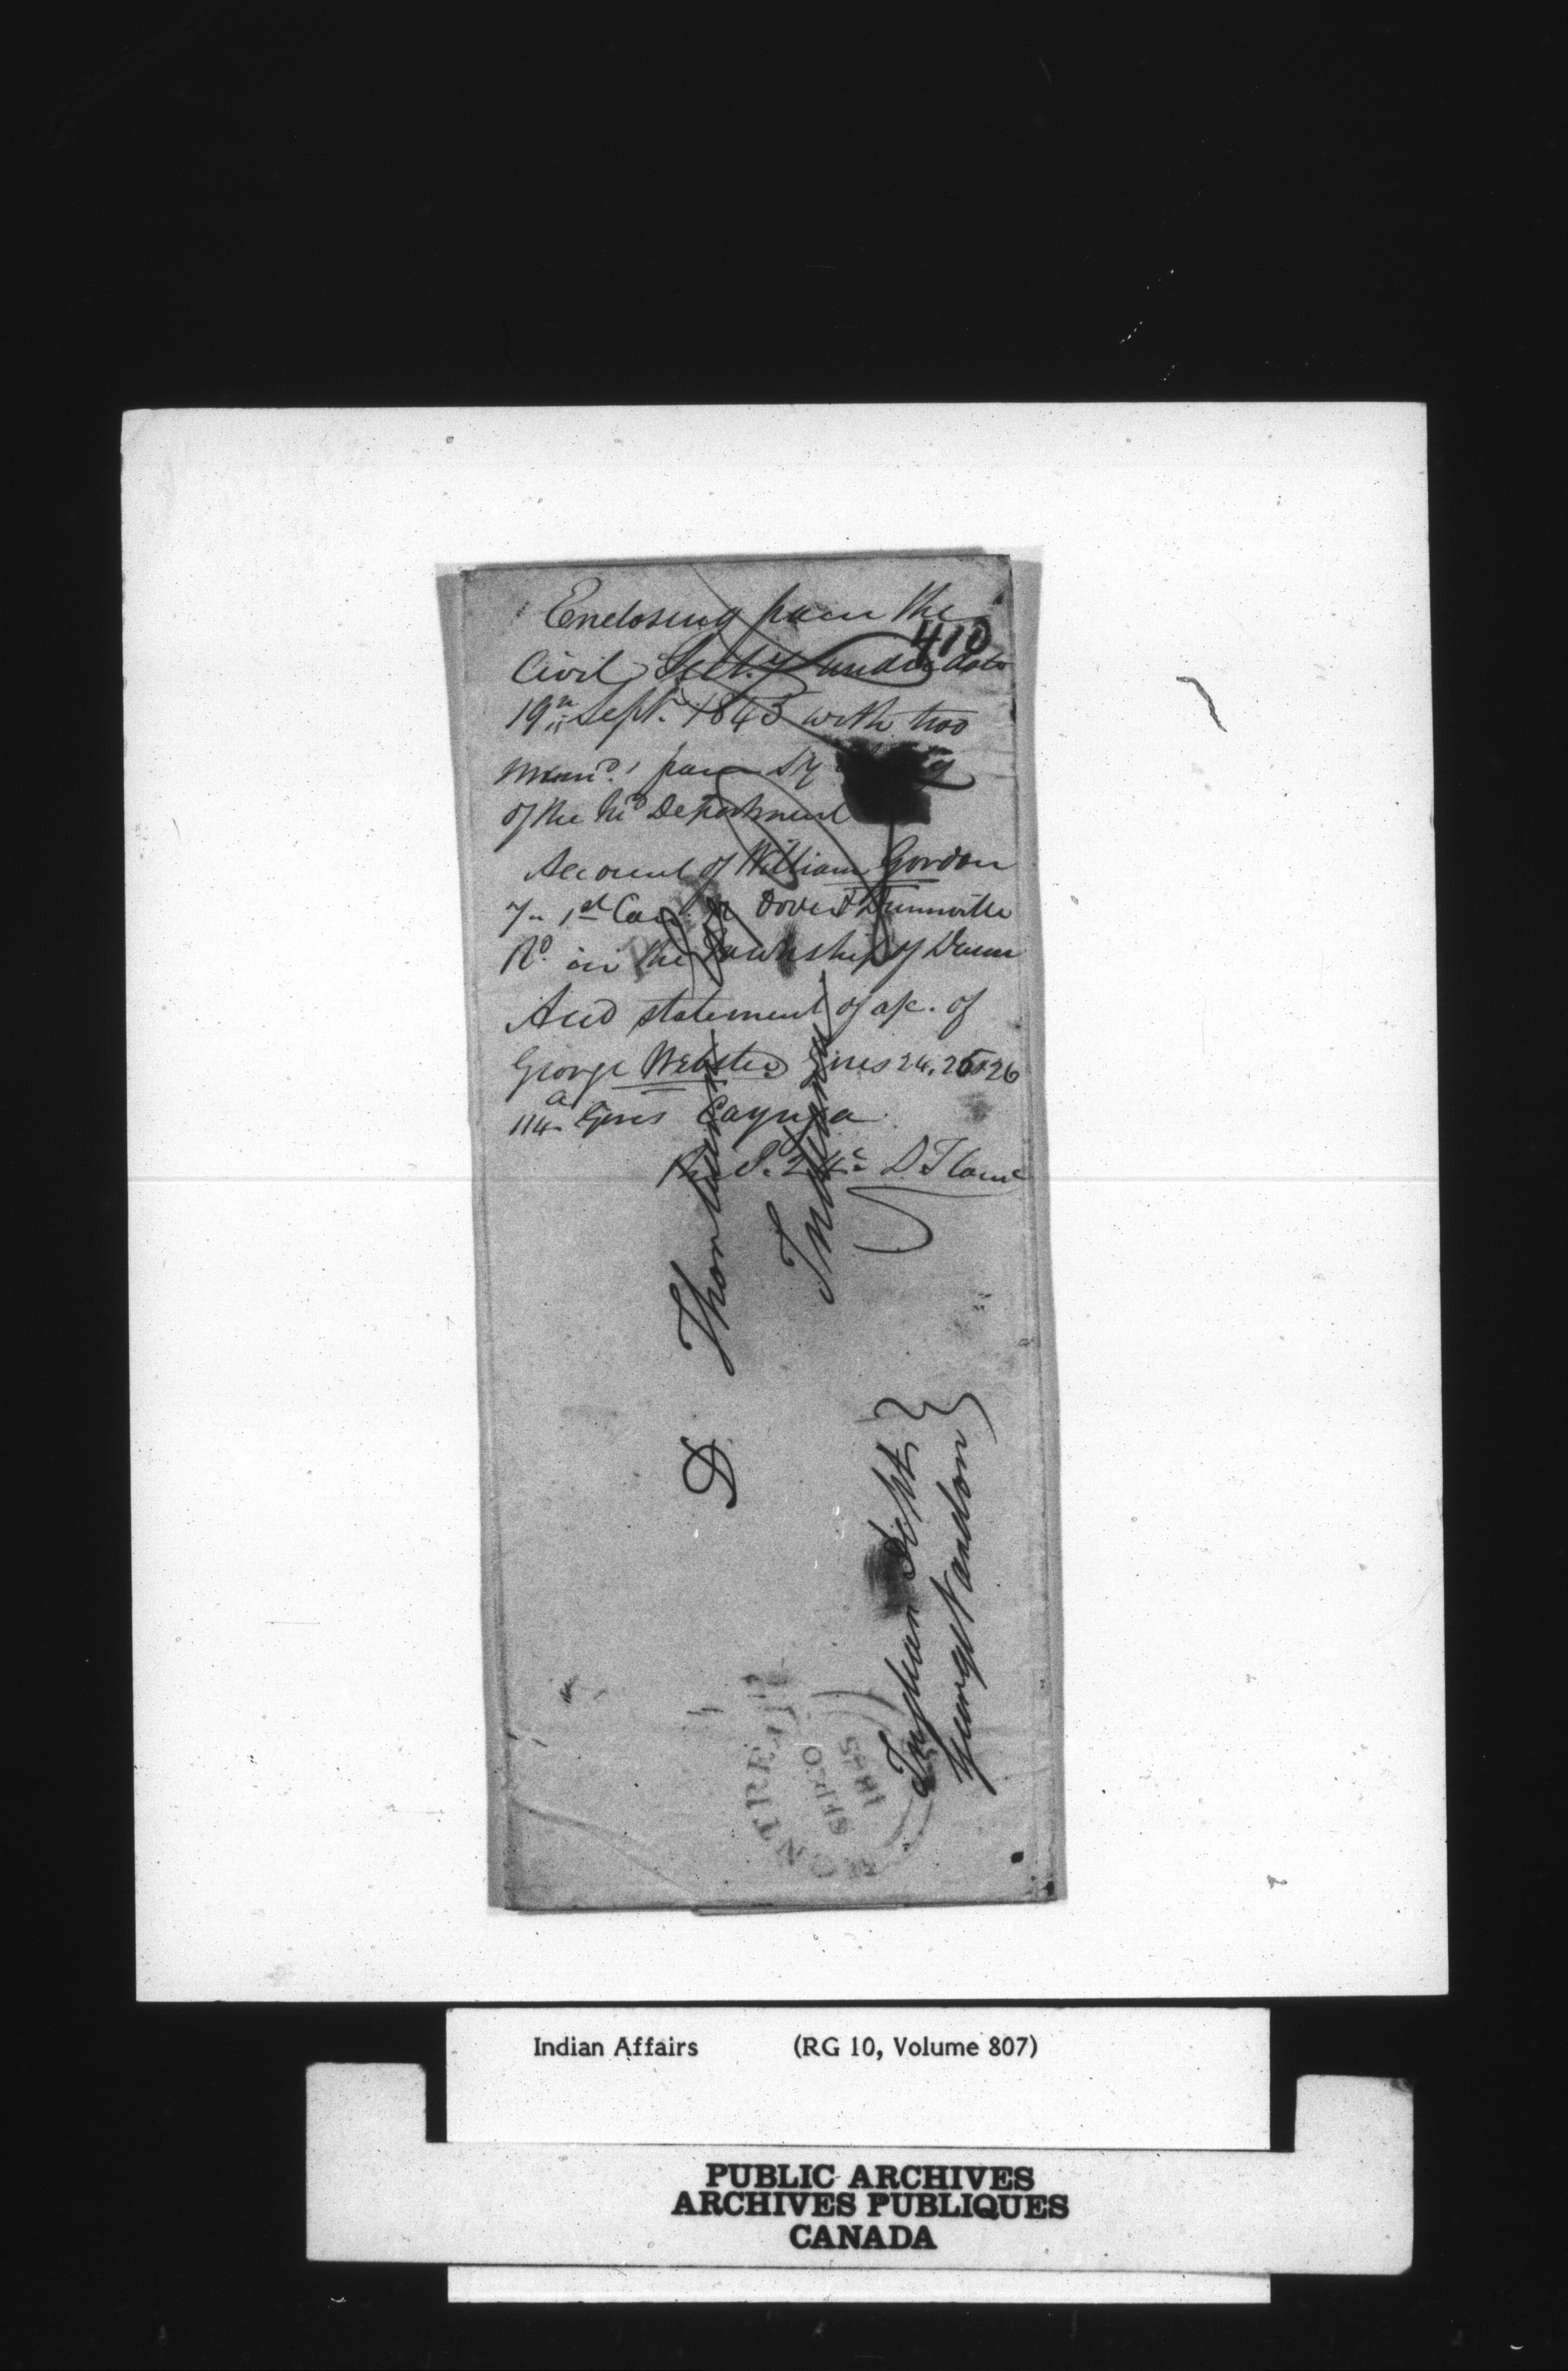 Enclosing from the
410
Civil Sect.y under date
19th Sept. 1843 with two
from
of the Department
Account of William Gordon
7 1st Con. Dover & Dunnville
Rd. in the Township of Dunn
And statement of a/c. of
George Webster 24, 25 & 26
114 Cayuga
D
Thorburn
Indiana
Indian Dept.
George Vardon
MONTREAL
OCT 13
1845
Indian Affairs (RG 10, Volume 807)
PUBLIC ARCHIVES
ARCHIVES PUBLIQUES
CANADA